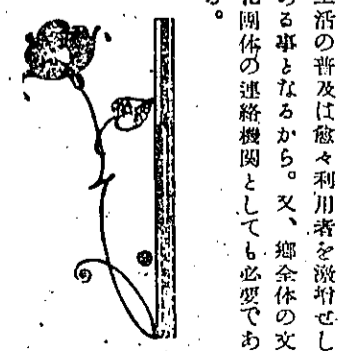 生活の普及は愈々利用者を激増せし
ある事となるから。又、鄕全体の文
化團体の連絡機関としても必要であ
る。